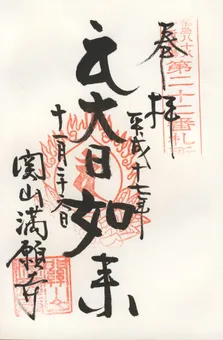 奉拝
第二十二番札所
平成十七年
大日如来
十一月二十八日
関山満願寺